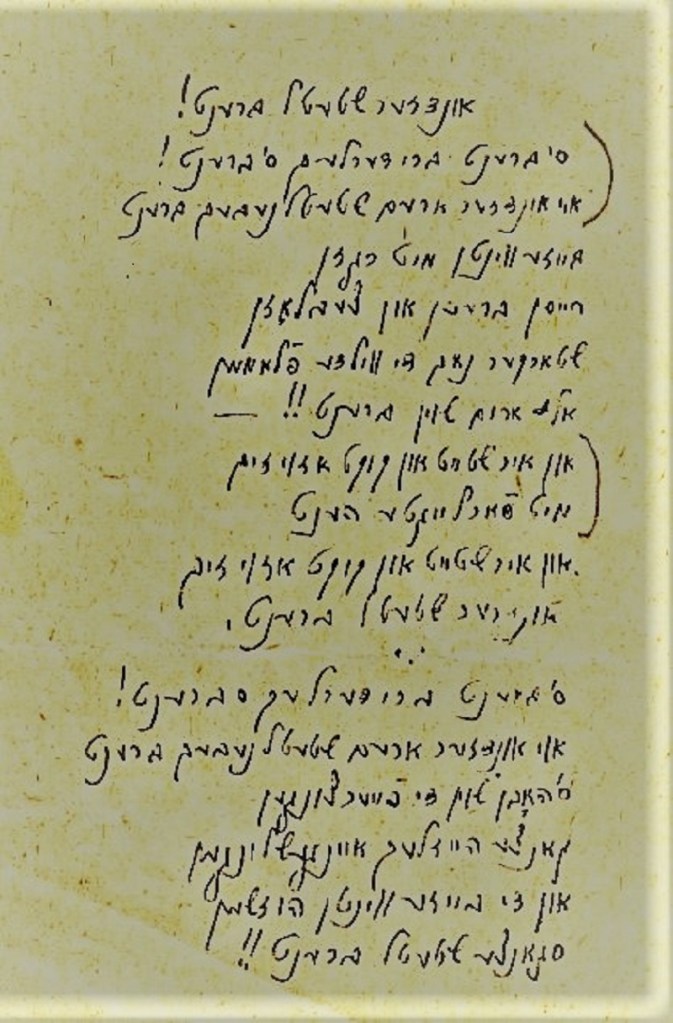 אונדזער שטעטל ברענט!
ס'ברענט ברידערלעך ס'ברענט!
אוי אונדזער ארעם שטעטל נעבעך ברענט
בייזע ווינטן מיט רגזן
רייסן ברעכן און צעבלאָזן
שטארקער נאך די ווילדע פֿלאמען
אלץ ארום שוין ברענט!! —
און איר שטייט און קוקט אזוי זיך
מיט פֿארלייגטע הענט
און איר שטייט און קוקט אזוי זיך
אונדזער שטעטל ברענט.
ס'ברענט ברידערלעך ס ברענט!
אוי אונדזער ארעם שטעטל נעבעך ברענט
ס'האָבן שוין די פֿייער צונגען
גאנצע הייזלעך איינגעשלונגען
און די בייזע ווינטן הוזשען
סגאנצע שטעטל ברענט!!